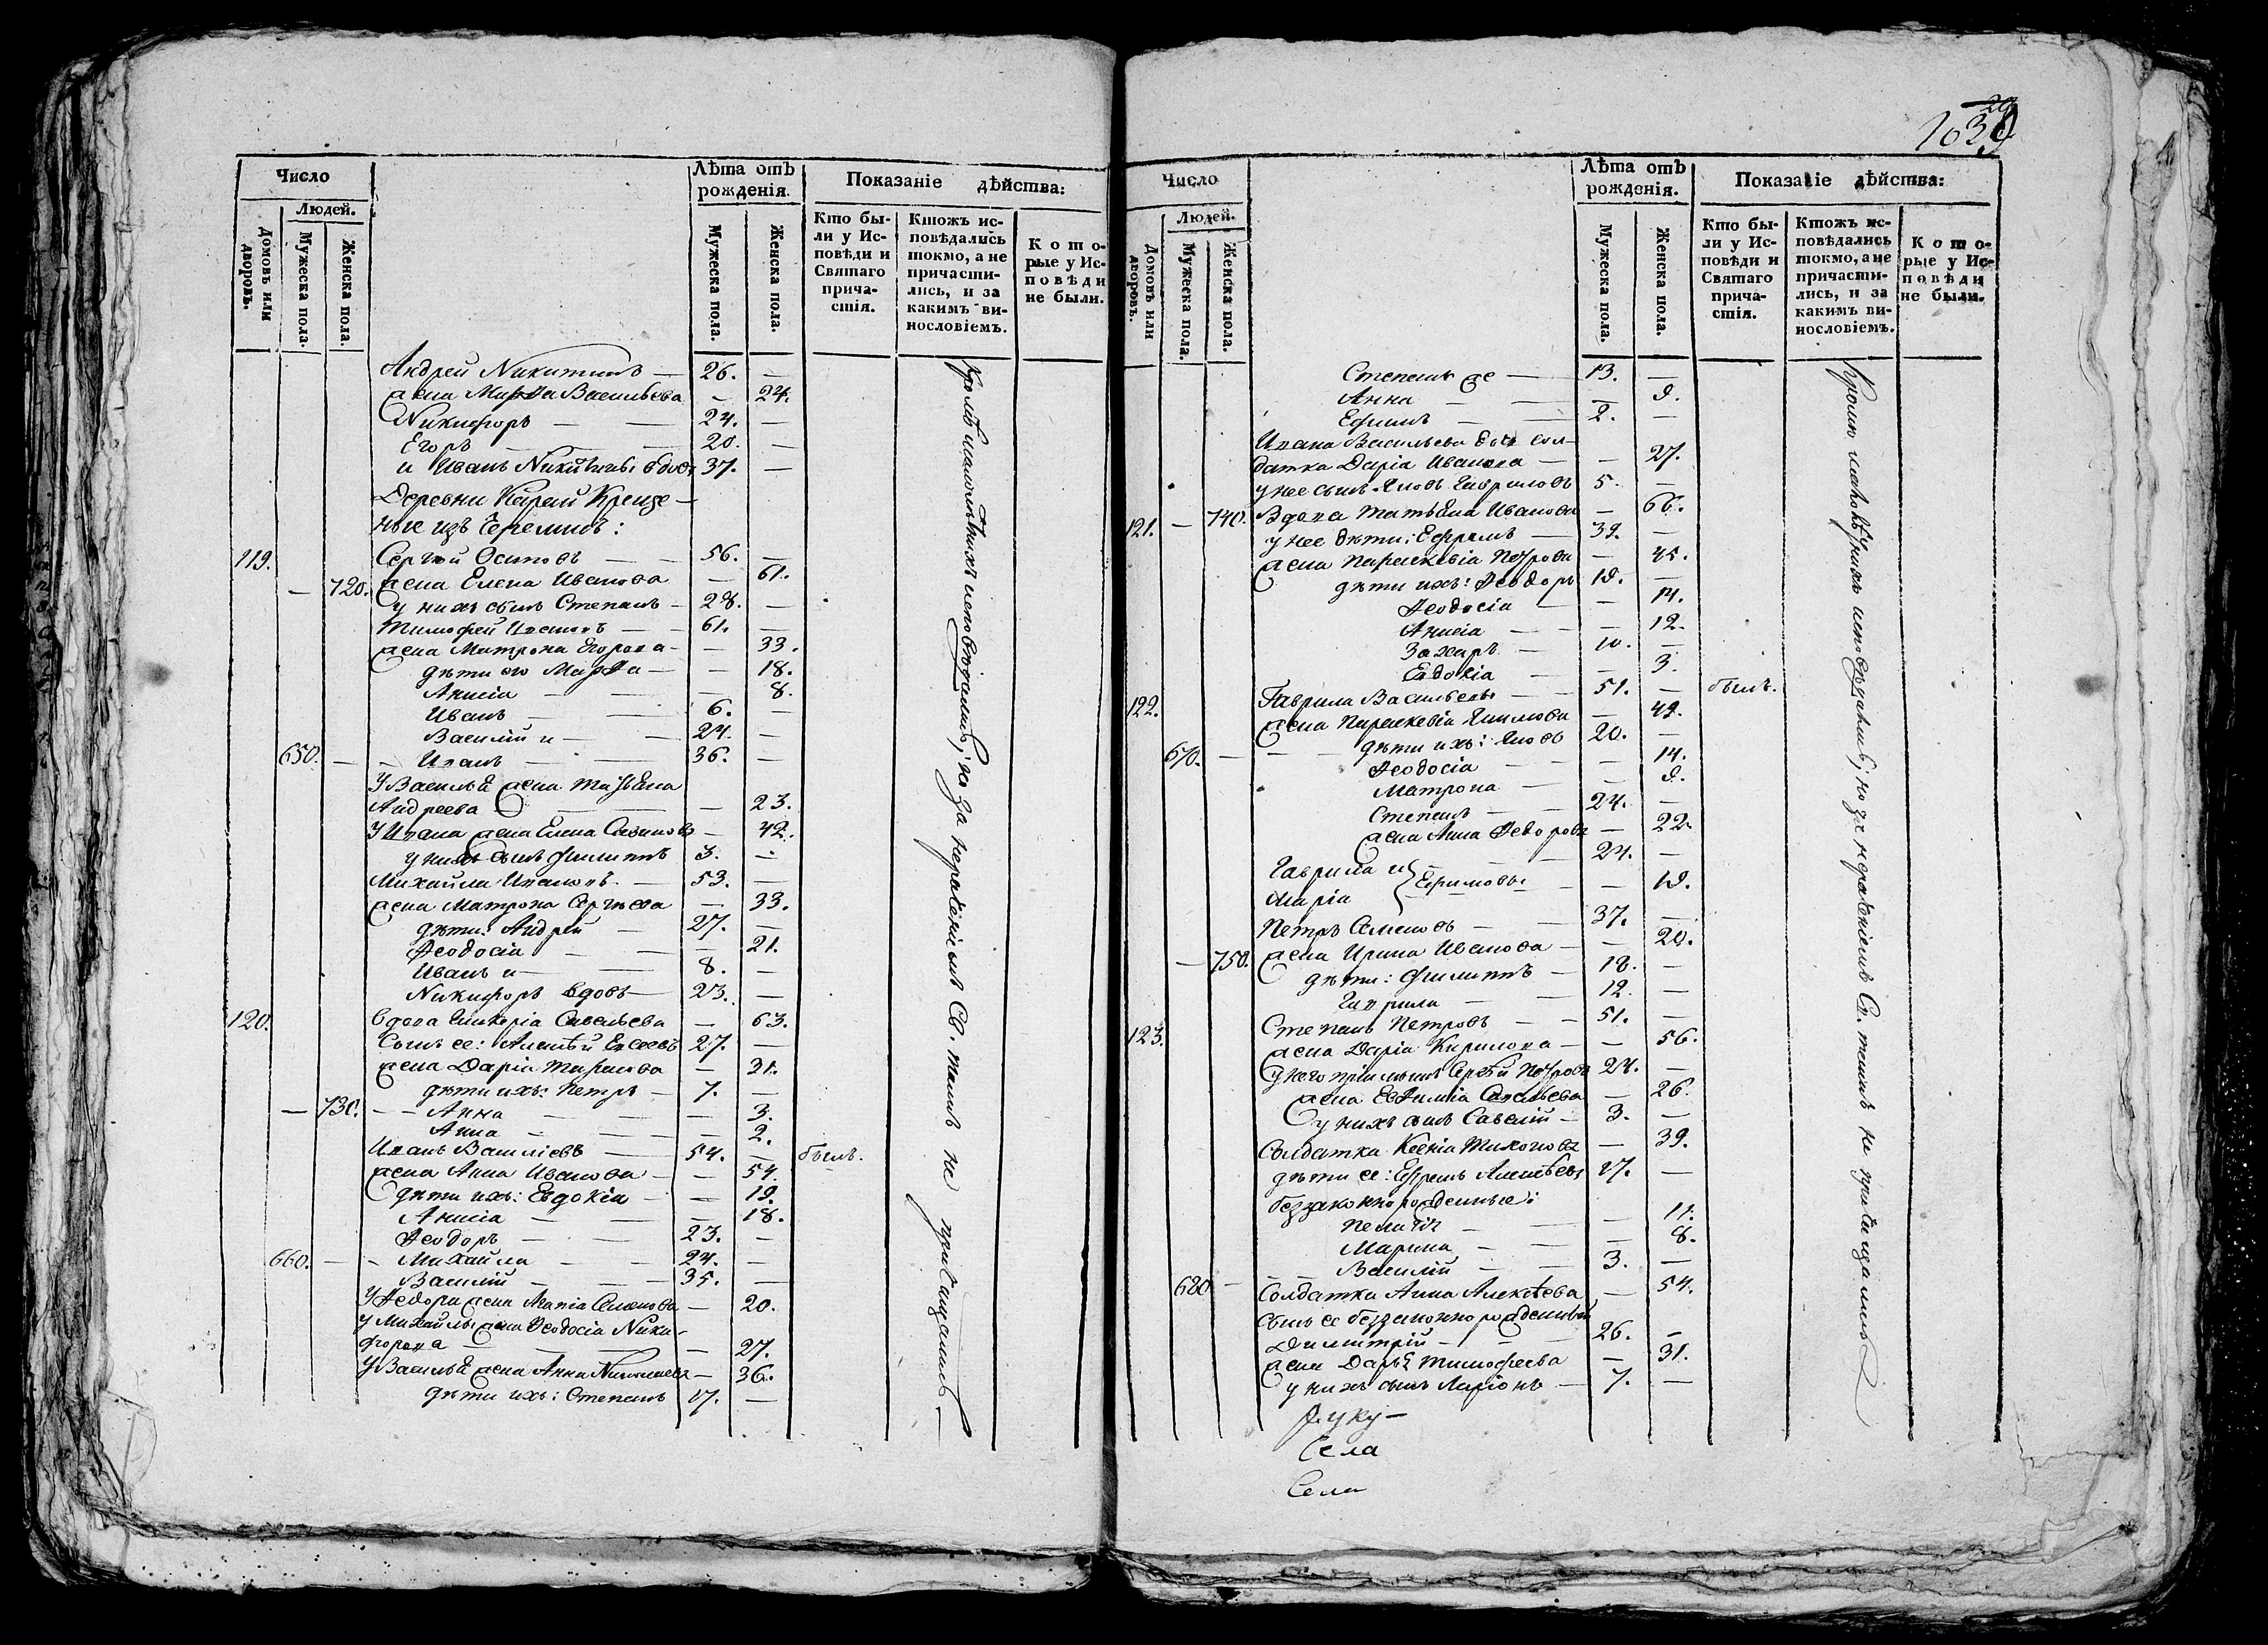 Число
Людей.
Домовъ или дворовъ.
Мужеска пола.
Женска пола.
Лѣта отъ рожденія.
Мужеска пола.
Женска пола.
Показаніе дѣйства:
Кто бы-
ли у Ис-
повѣди и
Святаго
прича-
стія.
Ктожъ ис-
повѣдались
токмо, а не
причасти-
лись, и за
какимъ ви-
нословіемъ.
Кото-
рые у Ис-
повѣди
не были.
Андрей Никитинъ — 26. —
жена Марѳа Васильева — 24.
Никифоръ — 24. —
Егоръ — 20. —
и Иванъ Никитины вдовъ 37. —
Деревни Карай Креще-
ные изъ Черемисъ:
119. Сергѣй Осиповъ — 56. —
— 720. жена Елена Иванова — 61.
у нихъ сынъ Степанъ — 28. —
Тимофей Ивановъ — 61. —
жена Матрона Егорова — 33.
дѣти его Марѳа — 18.
Анисія — 8.
Иванъ — 6. —
Василій и — 24. —
650. — Иванъ — 36. —
У Василья жена Татьяна
Андреева — 23.
У Ивана жена Елена — 42.
у нихъ сынъ Филиппъ 3. —
Михайла Ивановъ — 53. —
жена Матрона Сергѣева — 33.
дѣти: Андрей — 27. —
Ѳеодосія — 21.
Иванъ и — 8. —
Никифоръ вдовъ — 23. —
120. вдова Гликерія Савельева — 63.
Сынъ ее: Алексѣй 27. —
жена Дарія Тарасова — 31.
дѣти ихъ: Петръ — 7. —
— 730. — Анна — 3.
Анна — 2.
Иванъ Васильевъ — 54. — былъ.
жена Анна Иванова — 54.
дѣти ихъ: Евдокія — 19.
Анисія — 18.
Ѳеодоръ — 23. —
660. — Михайла — 24. —
Василій — 35. —
У Ѳедора жена Агапія Семенова — 20.
У Михайлы жена Ѳеодосія Ники-
форова — 27.
У Василья жена Анна Николаева — 36.
дѣти ихъ: Степанъ 17. —
Кромѣ малолѣтнихъ исповѣдались; но за нераденіемъ Св. таинъ не пріобщались —
1039
Число
Людей.
Домовъ или дворовъ.
Мужеска пола.
Женска пола.
Лѣта отъ рожденія.
Мужеска пола.
Женска пола.
Показаніе дѣйства:
Кто бы-
ли у Ис-
повѣди и
Святаго
прича-
стія.
Ктожъ ис-
повѣдались
токмо, а не
причасти-
лись, и за
какимъ ви-
нословіемъ.
Кото-
рые у Ис-
повѣди
не были.
Степанъ же — 13. —
Анна — 9.
Ефимъ — 2. —
Ивана Васильева сол-
датка Дарія Иванова — 27.
у нее сынъ Яковъ Гавриловъ 5. —
121. — 740. Вдова Татьяна Иванова — 66.
у нее дѣти: Ефремъ — 39. —
жена Параскевія Петрова — 45.
дѣти ихъ: Ѳеодоръ 19. —
Ѳеодосія — 14.
Анисія — 12.
Захаръ — 10. —
Евдокія — 3.
122. Гаврила Васильевъ — 51. — былъ.
жена Параскевія Якимова — 49.
670. — дѣти ихъ: Яковъ 20. —
Ѳеодосія — 14.
Матрона — 9.
Степанъ — 24. —
жена Анна Ѳедорова — 22.
Гаврила и } Ефимовы — 24. —
Марія — 19.
Петръ Семеновъ — 37. —
— 750. жена Ирина Иванова — 20.
дѣти: Филиппъ — 18. —
Гаврила — 12. —
123. Степанъ Петровъ — 51. —
жена Дарія Кирилова — 56.
У него пріимышъ Сергѣй Петровъ 24. —
жена Евѳимія Савельева — 26.
у нихъ сынъ Савелій — 3. —
Солдатка Ксенія Тихонова — 39.
дѣти ее: Ефремъ Алексѣевъ 17. —
беззаконнорожденные:
Пелагія — 11.
Марина — 8.
Василій — 3. —
680 — Солдатка Анна Алексѣева — 54.
Сынъ ее беззаконнорожденный
Димитрій — 26. —
жена Дарья Тимофеева — 31.
у нихъ сынъ Ларіонъ — 7. —
Села
Села
Кромѣ малолѣтнихъ исповѣдались; но за нераденіемъ Св. таинъ не пріобщались